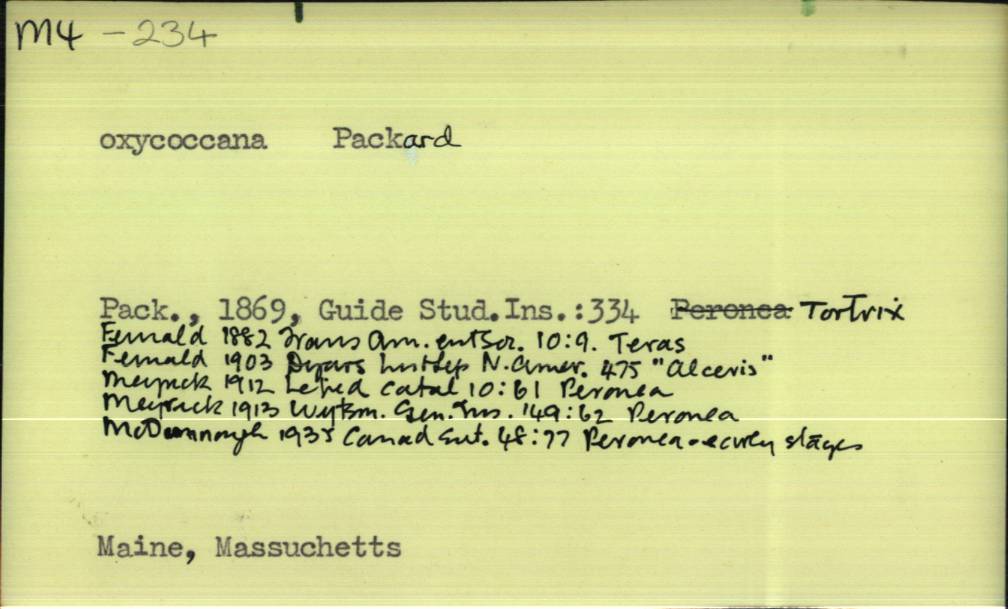 M4 - 234
oxycoccana Packard
Pack., 1869, Guide Stud.Ins.:334 Peronea Tortrix
Fernald 1882 Trans Am. ent Soc. 10:9. Teras
Fernald 1903 Dyars List Lep N. Amer. 475 "Alceris"
Meyrick 1912 Lepid Catal 10:61 Peronea
Meyrick 1913 Wytsm. Gen. Ins. 149:62 Peronea
McDunnough 1935 Canad Ent. 48:77 Peronea - early stages
Maine, Massuchetts